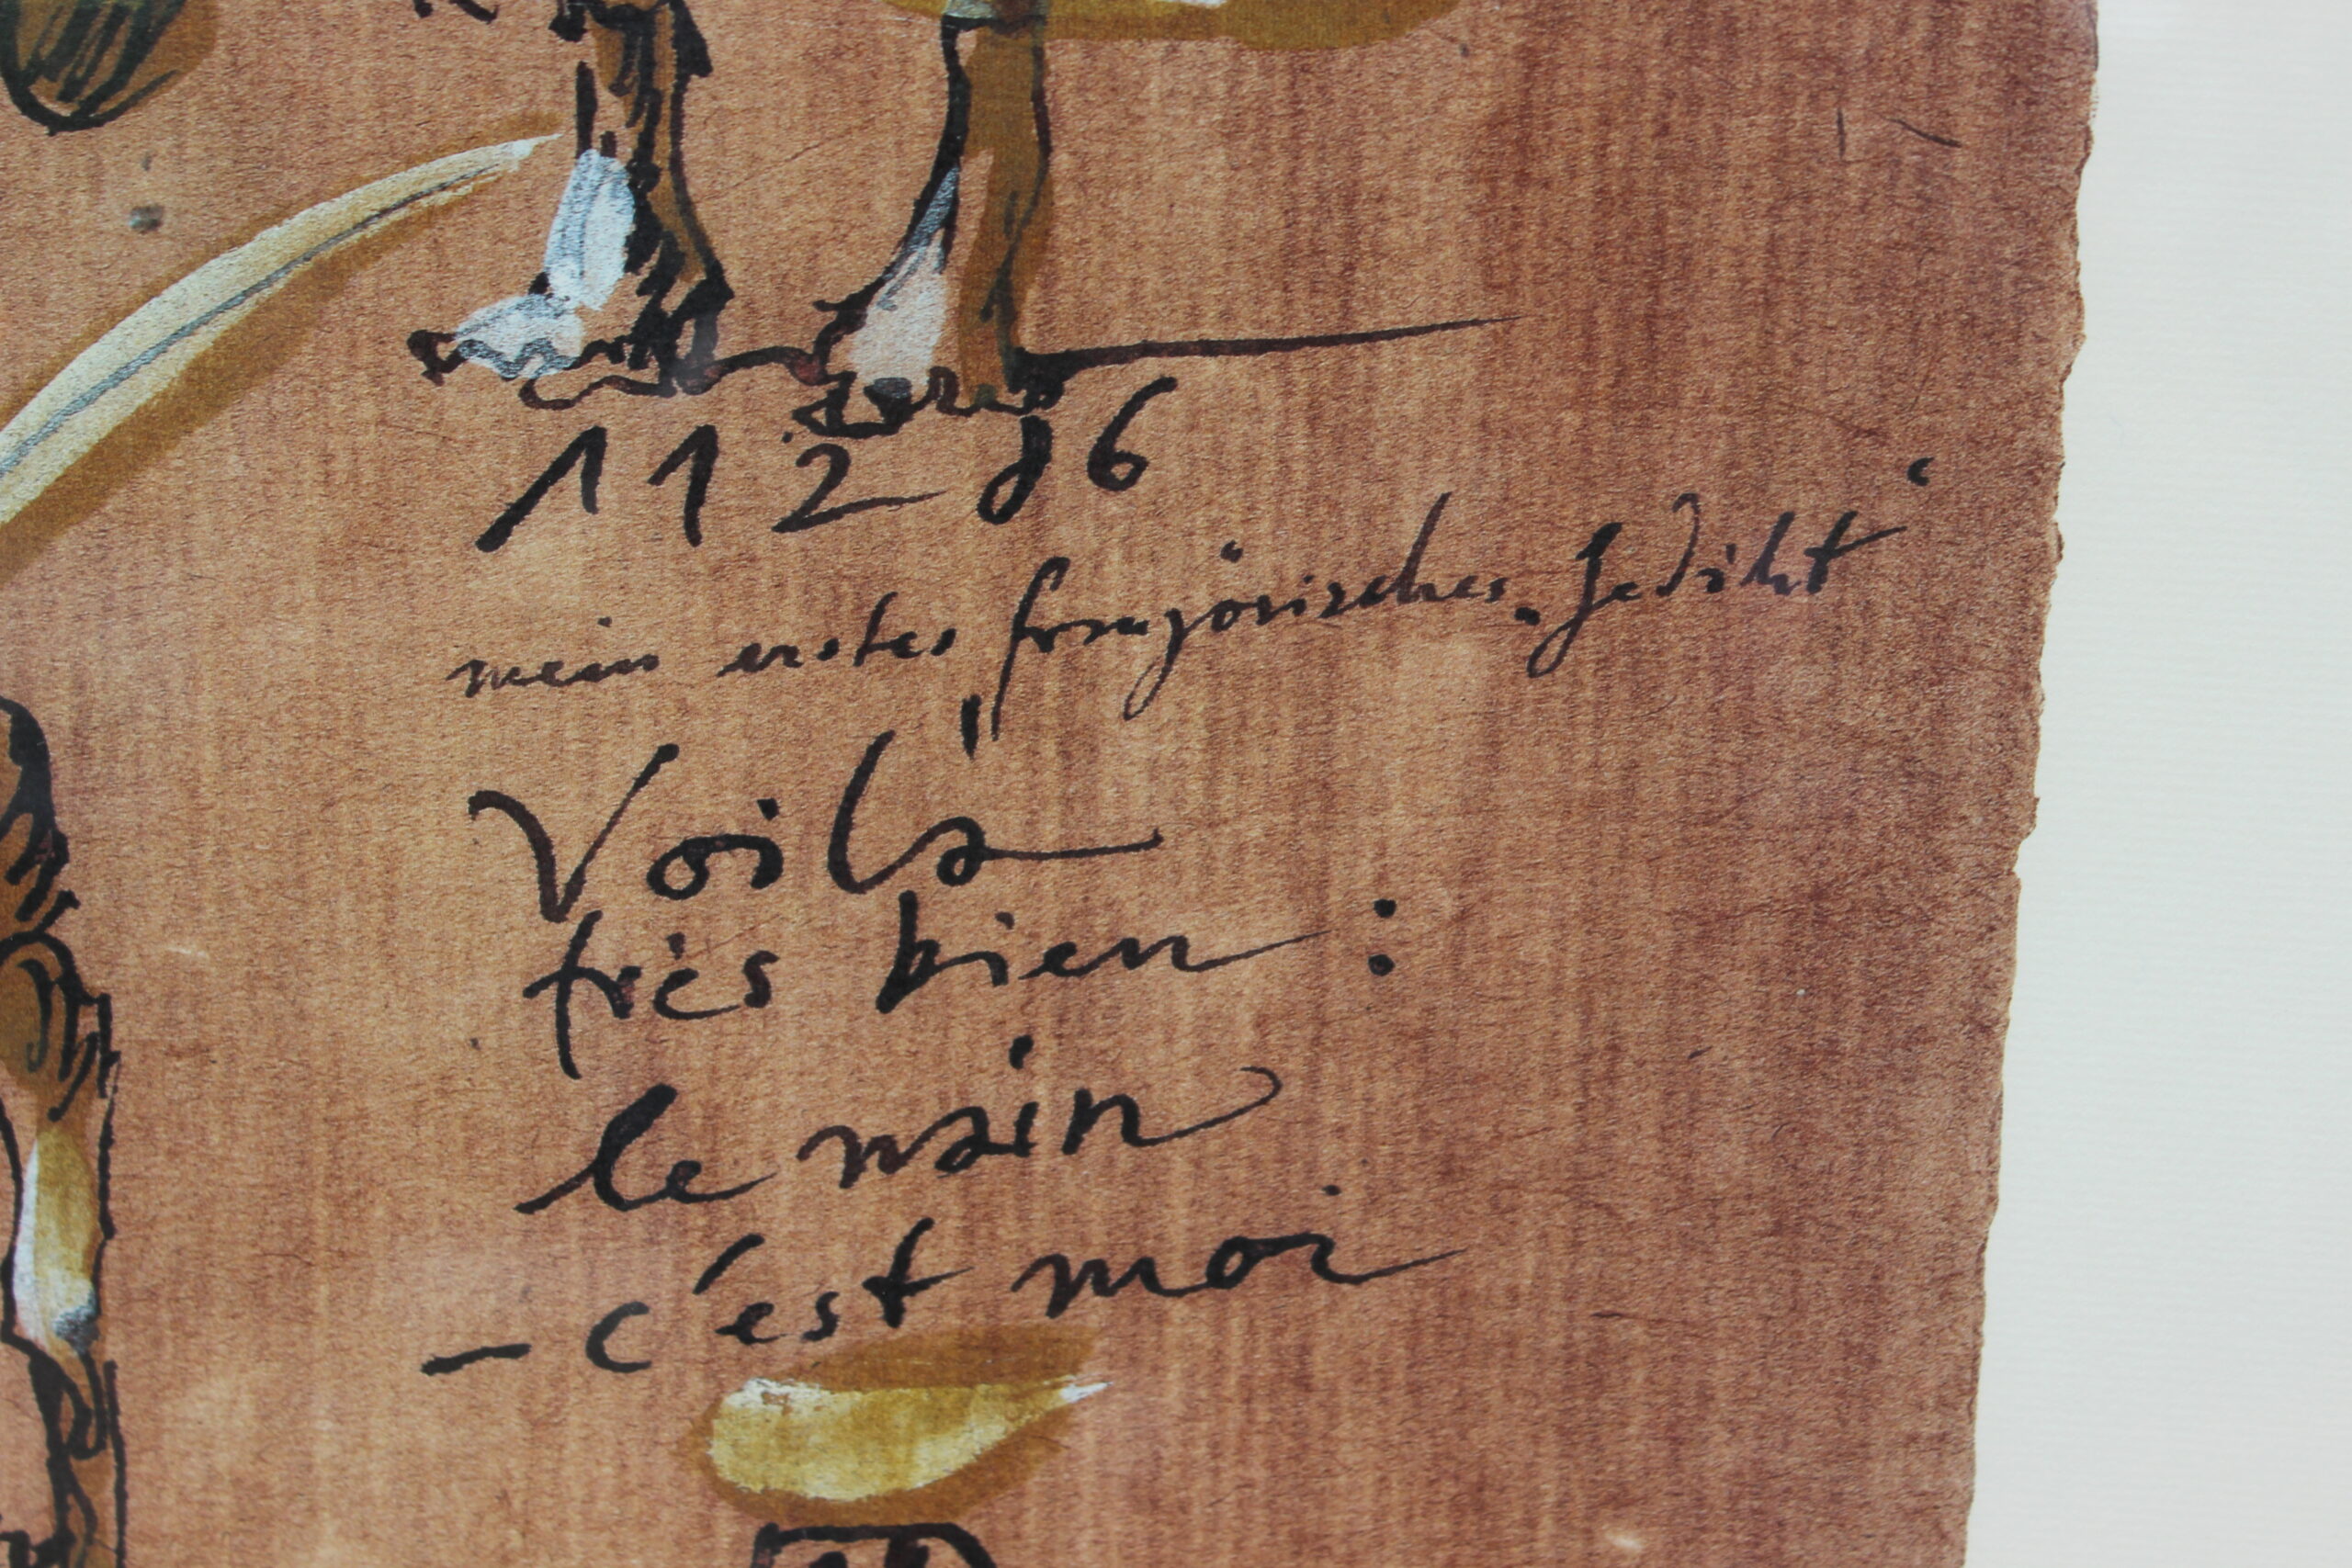 11 2 86
mein erstes französisches „Gedicht“
"
Voilà
très bien :
le nain
– c'est moi